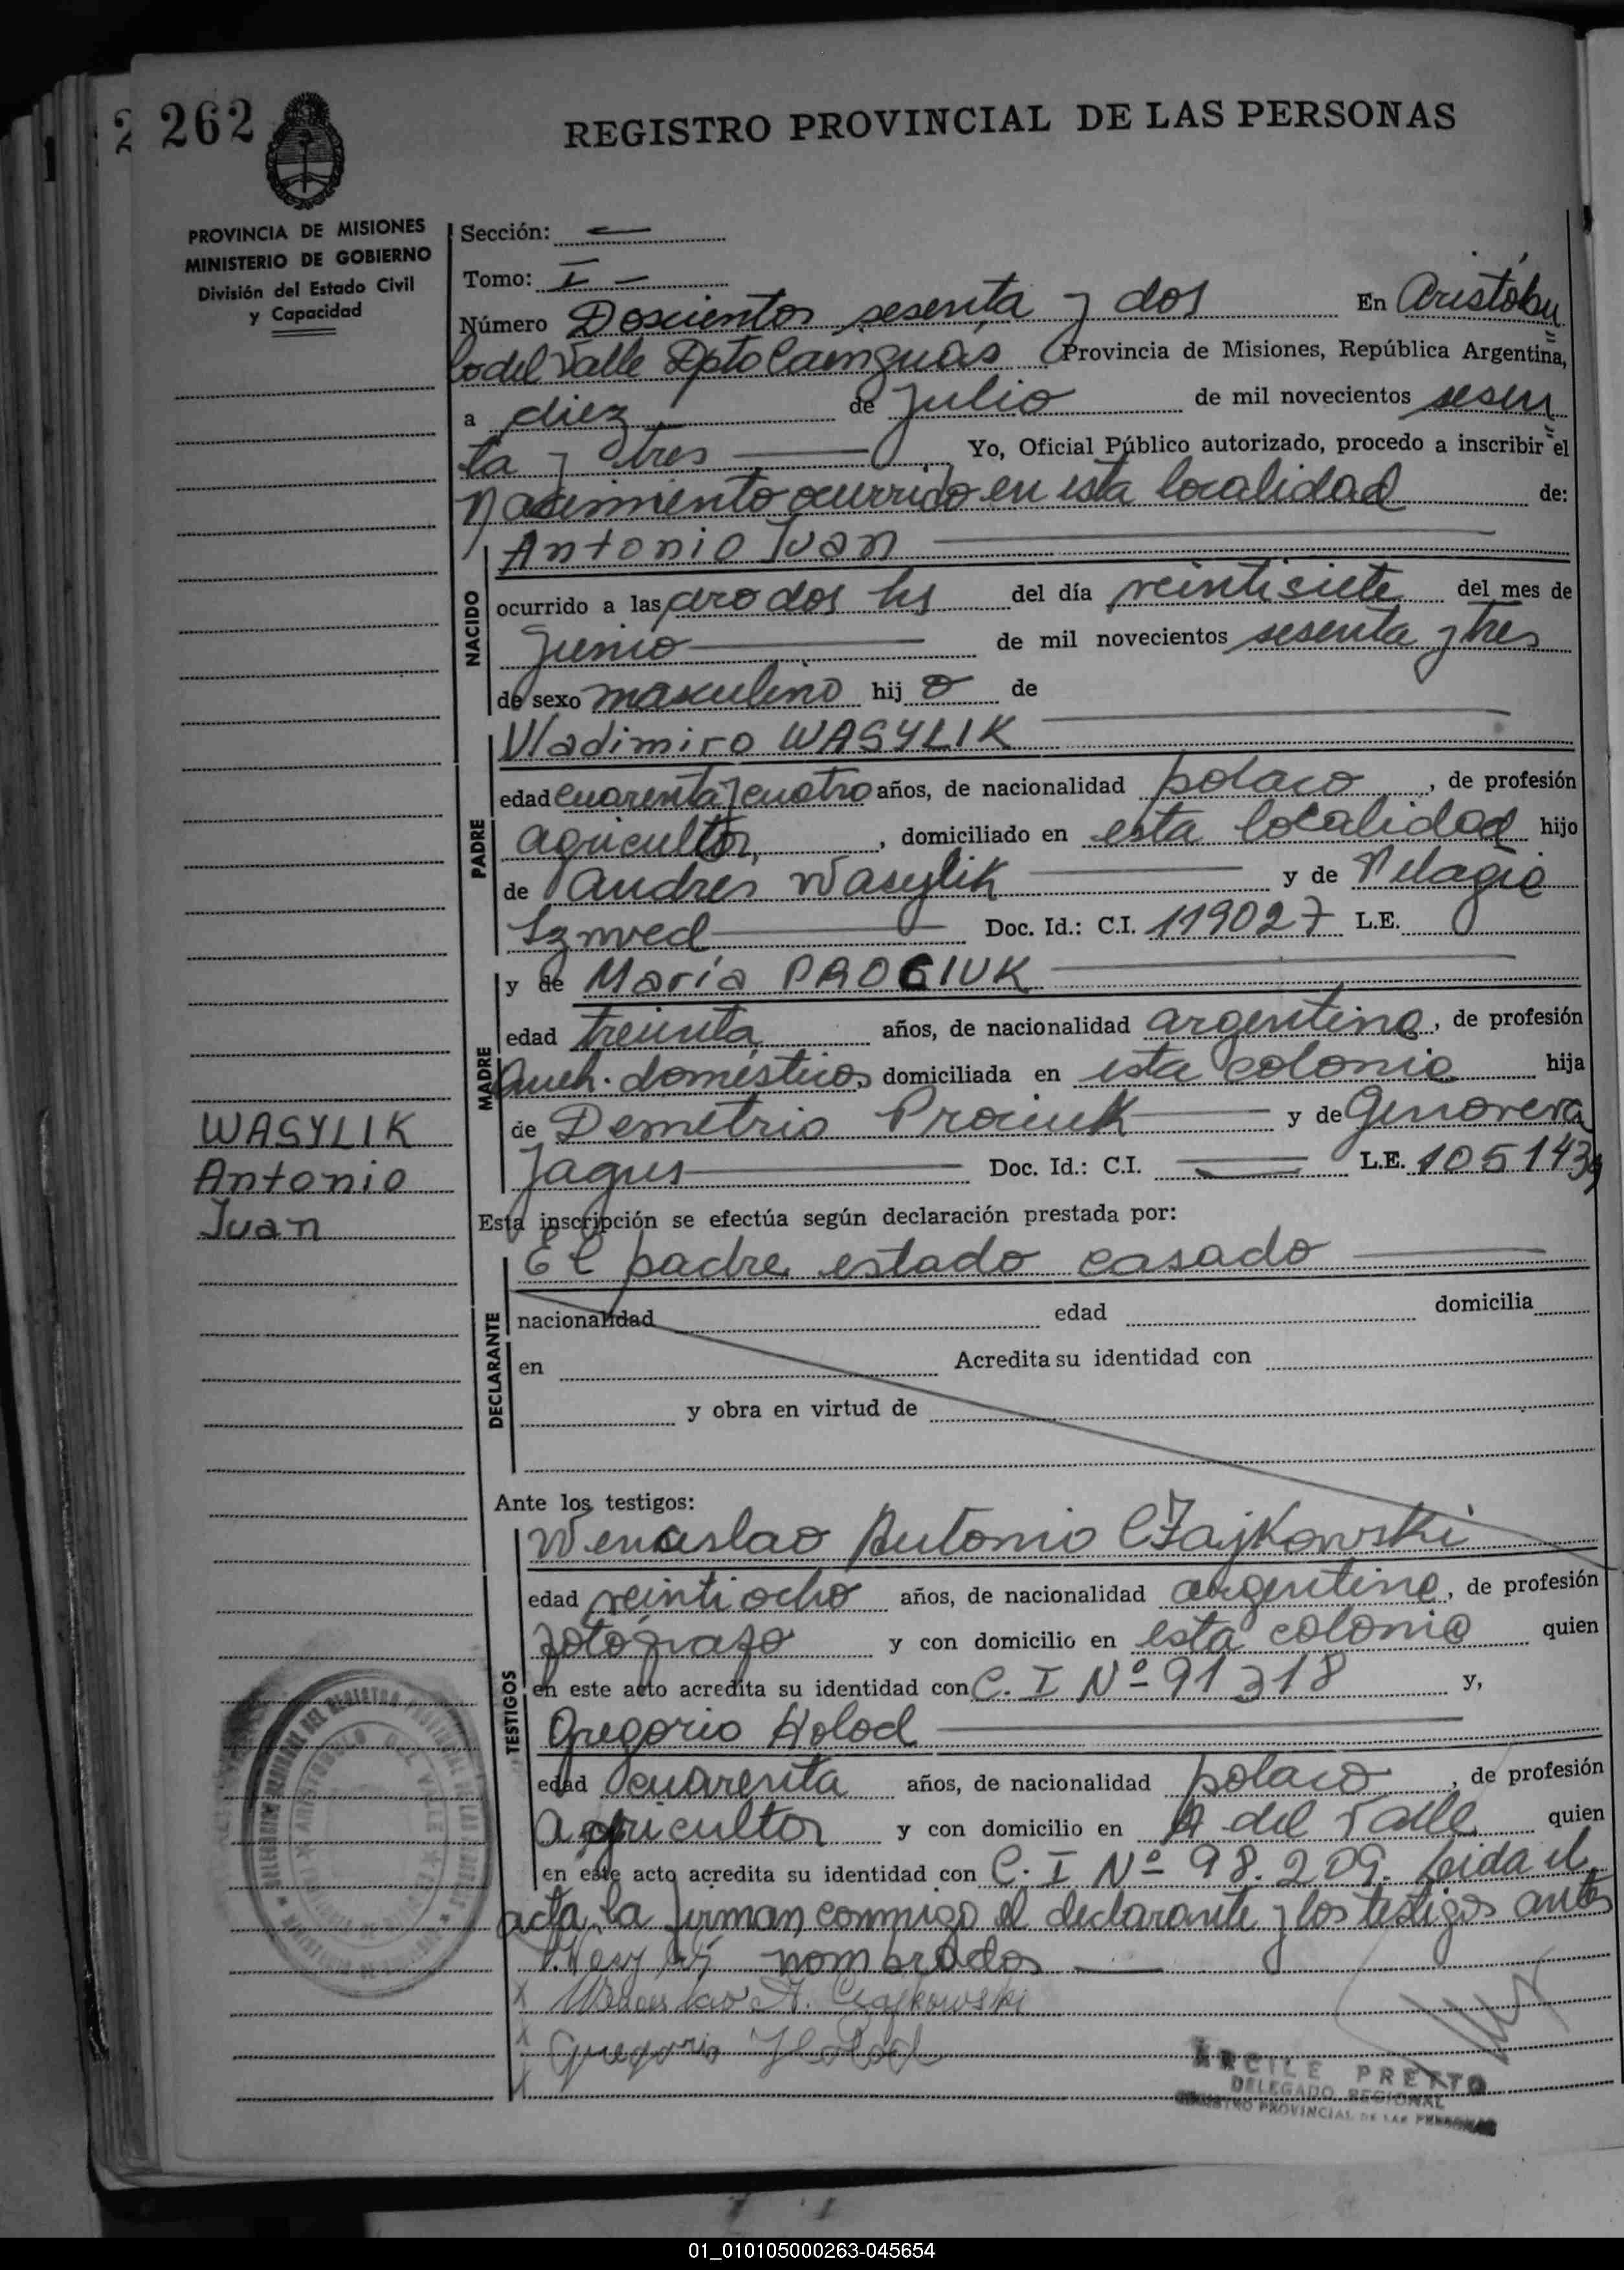 262
REGISTRO PROVINCIAL DE LAS PERSONAS
PROVINCIA DE MISIONES
MINISTERIO DE GOBIERNO
División del Estado Civil
y Capacidad
Sección: —
Tomo: I —
Número Doscientos sesenta y dos En Aristóbu
lo del Valle Dpto Cainguás Provincia de Misiones, República Argentina,
a diez de Julio de mil novecientos sesen
ta y tres — Yo, Oficial Público autorizado, procedo a inscribir el
Nacimiento ocurrido en esta localidad de:
NACIDO
Antonio Juan
ocurrido a las cero dos hs del día veintisiete del mes de
Junio — de mil novecientos sesenta y tres
de sexo masculino hij o de
PADRE
Vladimiro WASYLIK
edad cuarenta y cuatro años, de nacionalidad polaco, de profesión
agricultor, domiciliado en esta localidad hijo
de Andres Wasylik y de Pelagia
Szwed Doc. Id.: C.I. 119027 L.E.
MADRE
y de María PROCIUK
edad treinta años, de nacionalidad argentina, de profesión
domésticos domiciliada en esta colonia hija
de Demetrio Prociuk y de Genoveva
Jagus Doc. Id.: C.I. — L.E. 1051439
WASYLIK
Antonio
Juan
Esta inscripción se efectúa según declaración prestada por:
DECLARANTE
El padre estado casado
nacionalidad edad domicilia
en Acredita su identidad con
y obra en virtud de
Ante los testigos:
TESTIGOS
Wenceslao Antonio Czajkowski
edad veintiocho años, de nacionalidad argentino, de profesión
fotografo y con domicilio en esta colonia quien
en este acto acredita su identidad con C. I Nº 91318 y,
Gregorio Holod
edad cuarenta años, de nacionalidad polaco, de profesión
agricultor y con domicilio en A del Valle quien
en este acto acredita su identidad con C. I Nº 98.209. Leida el
acta, la firman conmigo el declarante y los testigos antes
nombrados —
X Wenceslao A. Czajkowski
X Gregorio Holod
X
ARCILE PRETTO
DELEGADO REGIONAL
REGISTRO PROVINCIAL DE LAS PERSONAS
01_010105000263-045654